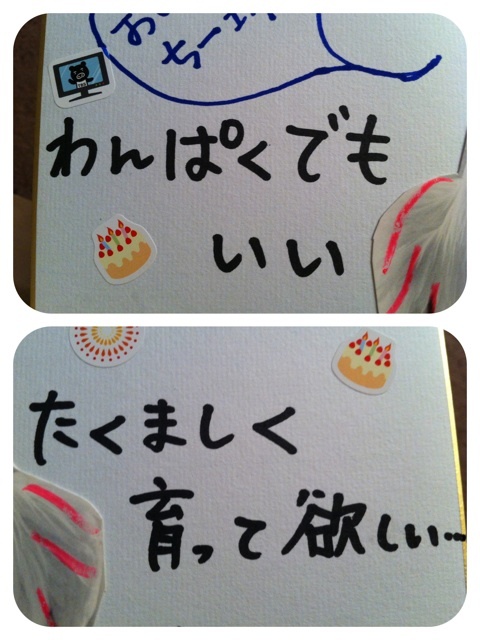 わんぱくでも
いい
たくましく
育って欲しい…